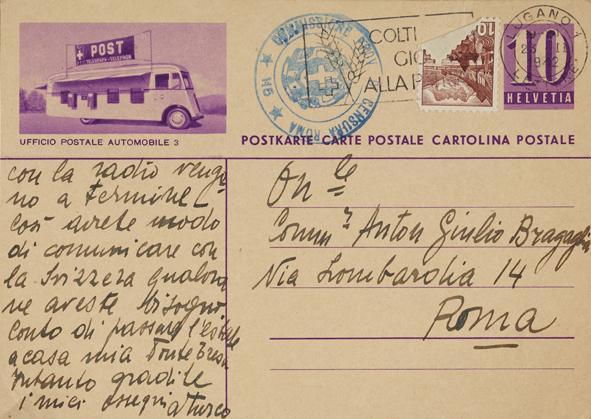 + POST
TELEGRAPH-TELEPHON
UFFICIO POSTALE AUTOMOBILE 3
COMMISSIONE PROV CENSURA ROMA
COLTI
GIO
ALLA P
10
LUGANO 1
1942
10
HELVETIA
POSTKARTE-CARTE POSTALE-CARTOLINA POSTALE
con la radio vengo
no a termine
Così avrete modo
di comunicare con
la Svizzera qualora
ne aveste bisogno
Conto di passare l'estate
a casa mia
Intanto gradite
i miei ossequi
On le
Comm r Anton Giulio Bragaglia
Via Lombardia 14
Roma